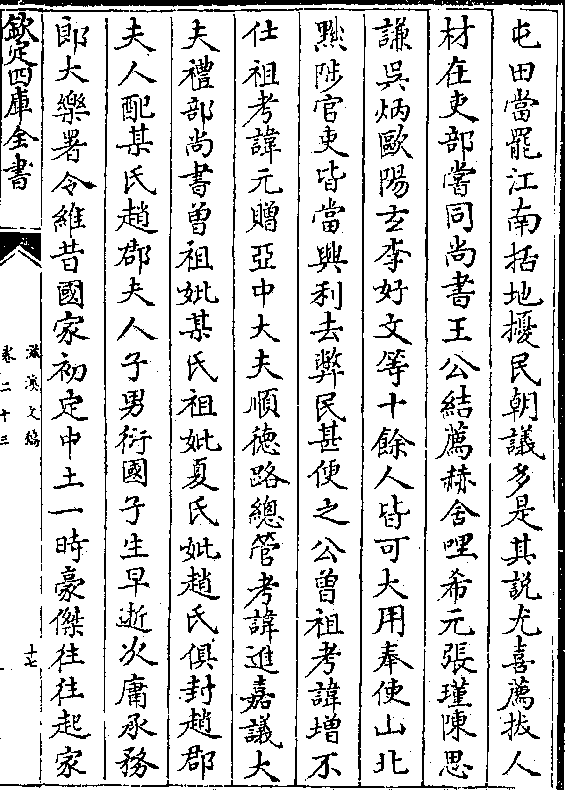 屯田當罷江南括地擾民朝議多是其説尤喜薦拔人
材在吏部嘗同尚書王公結薦赫舍哩希元張瑾陳思
謙吳炳歐陽玄李好文等十餘人皆可大用奉使山北
黜陟官吏皆當興利去弊民甚便之公曾祖考諱増不
仕祖考諱元贈亞中大夫順德路總管考諱進嘉議大
夫禮部尚書曾祖妣某氏祖妣夏氏妣趙氏俱封趙郡
夫人配某氏趙郡夫人子男衍國子生早逝次庸承務
郎大樂署令維昔國家初定中土一時豪傑往往起家
欽定四庫全書
滋溪文稿
卷二十三
十七